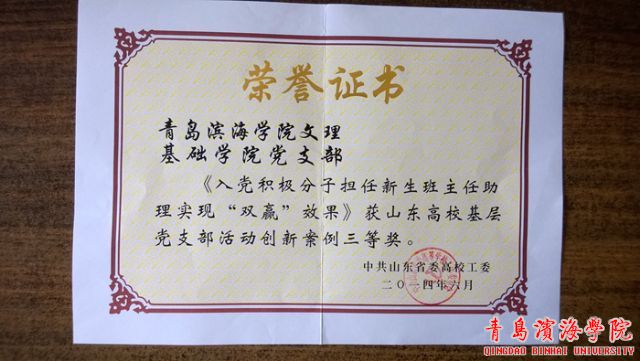 荣誉证书
青岛滨海学院文理
基础学院党支部
《入党积极分子担任新生班主任助
理实现“双赢”效果》获山东高校基层
党支部活动创新案例三等奖。
中共山东省委高校工委
二〇一四年六月
青岛滨海学院
QINGDAO BINHAI UNIVERSITY